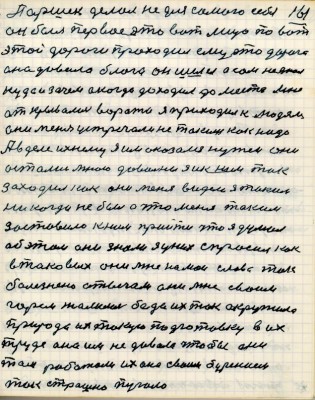 Паршек делал не для самого себя 161
он был первое это вот лицо по вот
этой дороги проходил ему это дорога
она давала блага он шел а сам не знал
куда и зачем а когда доходил до места мне
открывали ворота я приходил к людям
они меня устречали не таким как надо
А в деле ихнему я им оказался нужен они
остались мною довольны я к ним так
заходил как они меня видели я таким
никогда не был а это меня таким
заставило к ним прийти что я думал
об этом они знали я у них спросил как
в таковых они мне на мои слова так
болезно отвечали они мне своим
горем жалились беда их так окружила
природа их такую подготовку в их
труде она им не давала чтобы они
там работали их она своим бурением
так страшно пугала